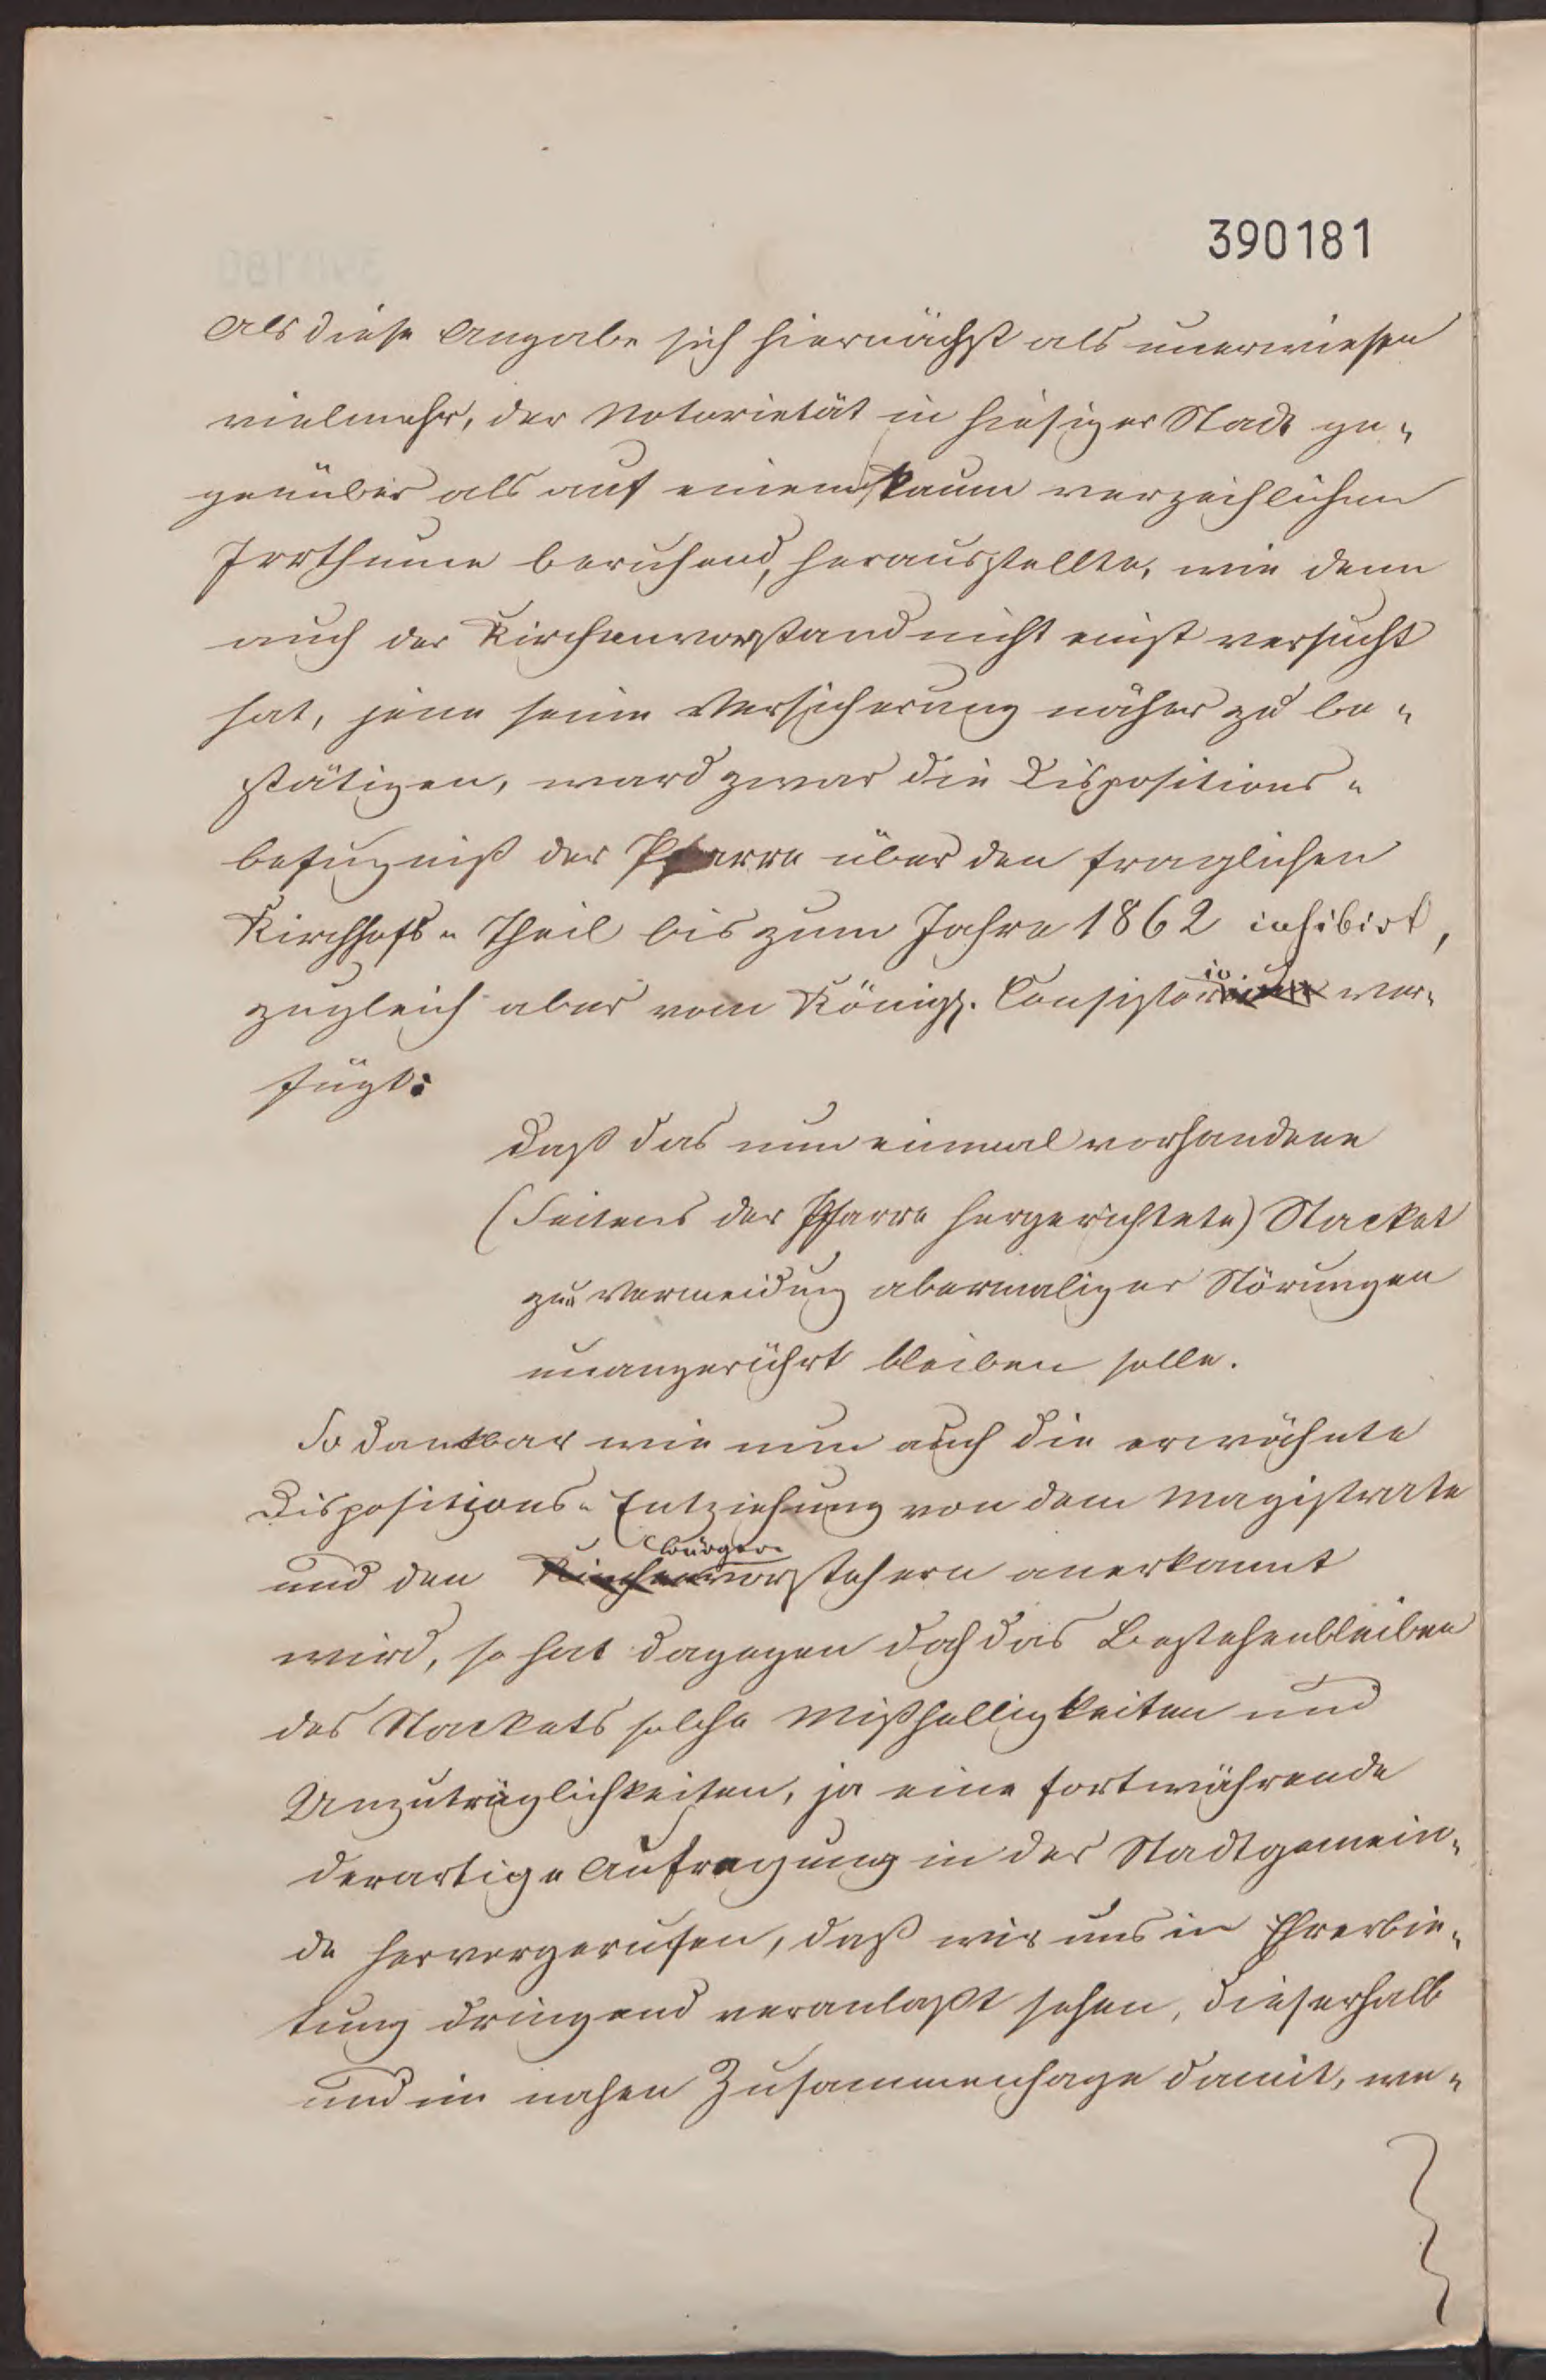 390181
Als diese Angabe sich hiernächst als unerwiesen
vielmehr, der Notorietät in hiesiger Stadt ge-
genüber als auf einem kaum verzeihlichen
Irrthume beruhend, herausstellte, wie denn
auch der Kirchenvorstand nicht einst versucht
hat, jene seine Versicherung näher zu be-
stätigen, ward zwar die Dispositions-
befugniß der Pfarre über den fraglichen
Kirchhofs-Theil bis zum Jahre 1862 inhibirt,
zugleich aber vom Königl. Consistorio ver-
fügt:
daß das nun einmal vorhandene
(Seitens der Pfarre hergerichtete) Stacket
zur Vermeidung abermaliger Störungen
unangerührt bleiben solle.
So dankbar wie nun auch die erwähnte
Dispositions-Entziehung von dem Magistrate
und den Bürgervorstehern anerkannt
wird, so hat dagegen doch das Bestehenbleiben
des Stackets solche Mißhelligkeiten und
Unzuträglichkeiten, ja eine fortwährende
derartige Aufregung in der Stadtgemein-
de hervorgerufen, daß wir uns in Ehrerbie-
tung dringend veranlaßt sehen, dieserhalb
und im nahen Zusammenhage damit, we-